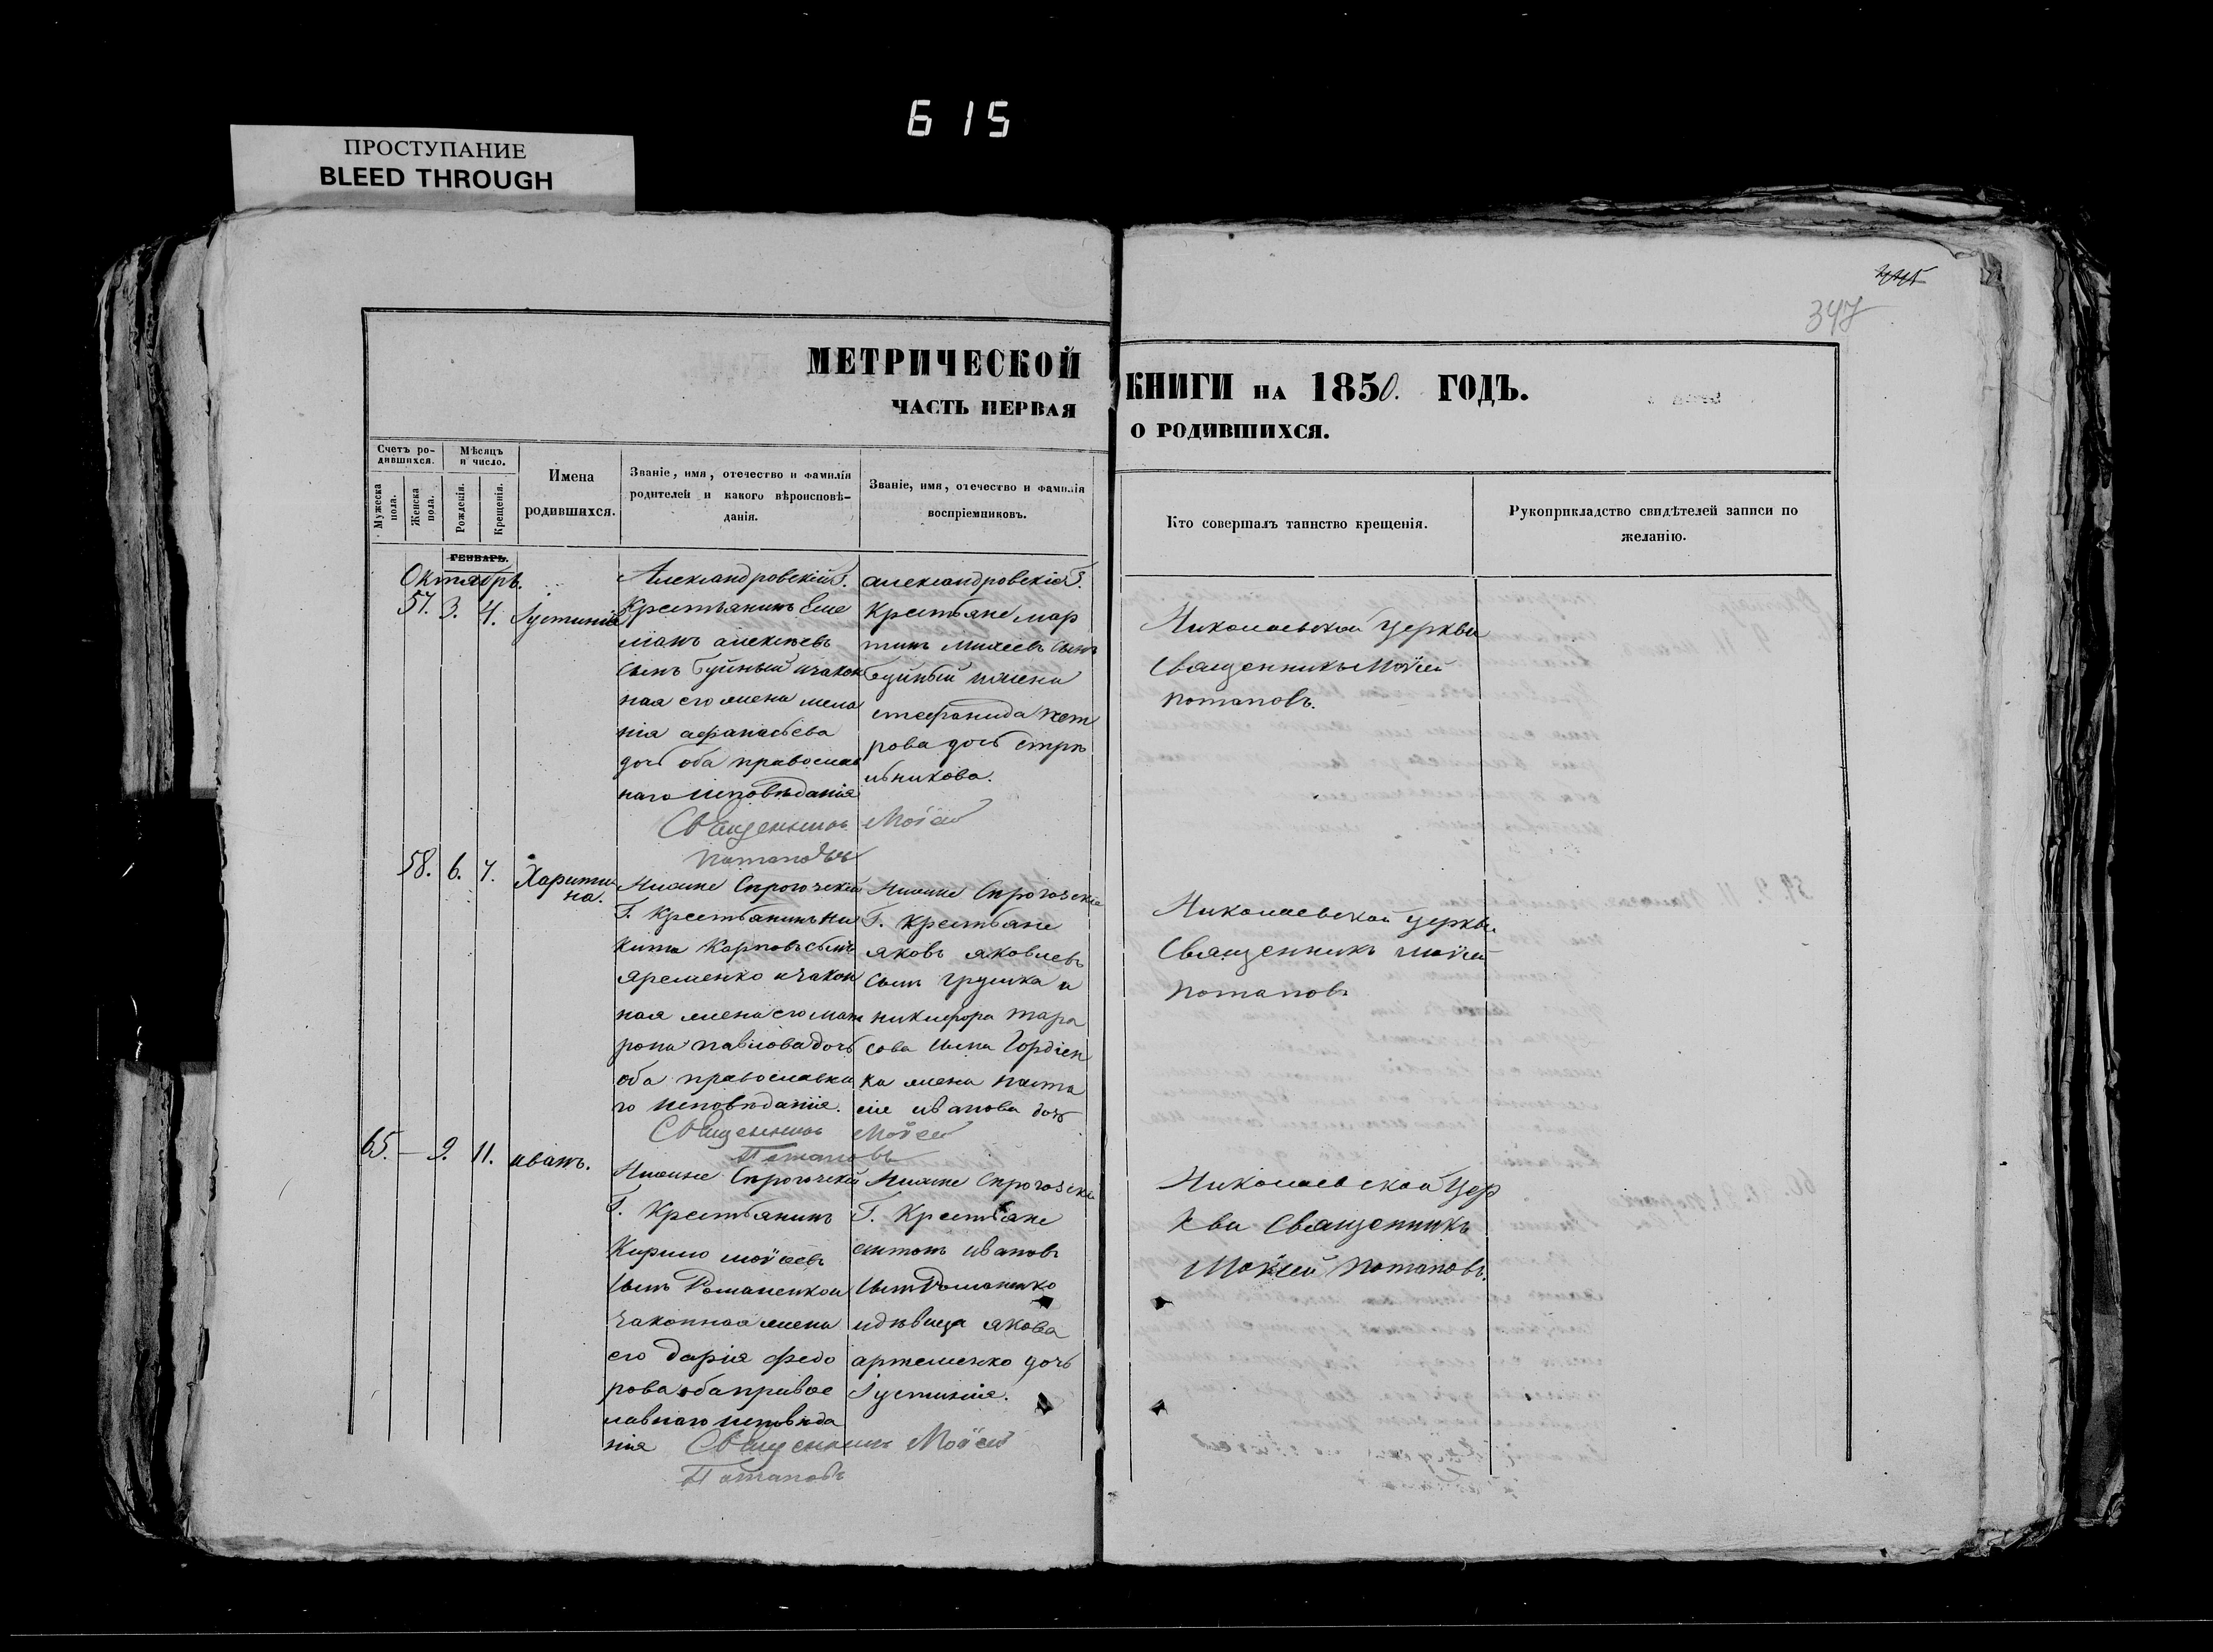 615
ПРОСТУПАНИЕ
BLEED THROUGH
347
МЕТРИЧЕСКОЙ КНИГИ НА 1850. ГОДЪ.
ЧАСТЬ ПЕРВАЯ О РОДИВШИХСЯ.
Счетъ ро-
дившихся.
Мужеска пола.
Женска пола.
Мѣсяцъ
и число.
Рожденія.
Крещенія.
Имена
родившихся.
Званіе, имя, отечество и фамилія
родителей и какого вѣроисповѣ-
данія.
Званіе, имя, отечество и фамилія
воспріемниковъ.
Кто совершалъ таинство крещенія.
Рукоприкладство свидѣтелей записи по
желанію.
ГЕНВАРЬ.
Октябрь.
57. 3. 4. Іустинія
Александровскій Г.
Крестьянинъ Еме
льянъ алексѣевъ
сынъ буйный и закон
ная его жена мела
нія афанасьева
дочь оба православ
наго исповѣданія
александровскіе Г.
крестьяне мар
тинъ михеевъ сынъ
буйный и жена
стефанида пет
рова дочь стрѣ
льникова.
Николаевской церкви
Священникъ Моѵсей
потаповъ.
Священникъ Моѵсей
потаповъ
58. 6. 7. Харити
на.
Нижне Сѣрогозскій
Г. Крестьянинъ Ни
кита Карповъ сынъ
яременко и закон
ная жена его мат
рона павлова дочь
оба православна
го исповѣданія.
Нижне Сѣрогозскіе
Г. крестьяне
яковъ яковлевъ
сынъ грушка и
никифора тара
сова сына Гордіен
ка жена наста
сія иванова дочь
Николаевской церкви
Священникъ моѵсей
потаповъ
Священникъ Моѵсей
Потаповъ
65. — 9. 11. иванъ.
Нижне Сѣрогозскій
Г. Крестьянинъ
Кирило моѵсеевъ
сынъ Романенко и
законная жена
его дарія федо
рова оба правос
лавнаго исповѣда
нія
Нижне Сѣрогозскіе
Г. Крестьяне
антонъ ивановъ
сынъ Романенко
и дѣвица якова
артеменко дочь
Іустинія.
Николаевской Цер
кви Священникъ
Моѵсей потаповъ.
Священникъ Моѵсей
Потаповъ